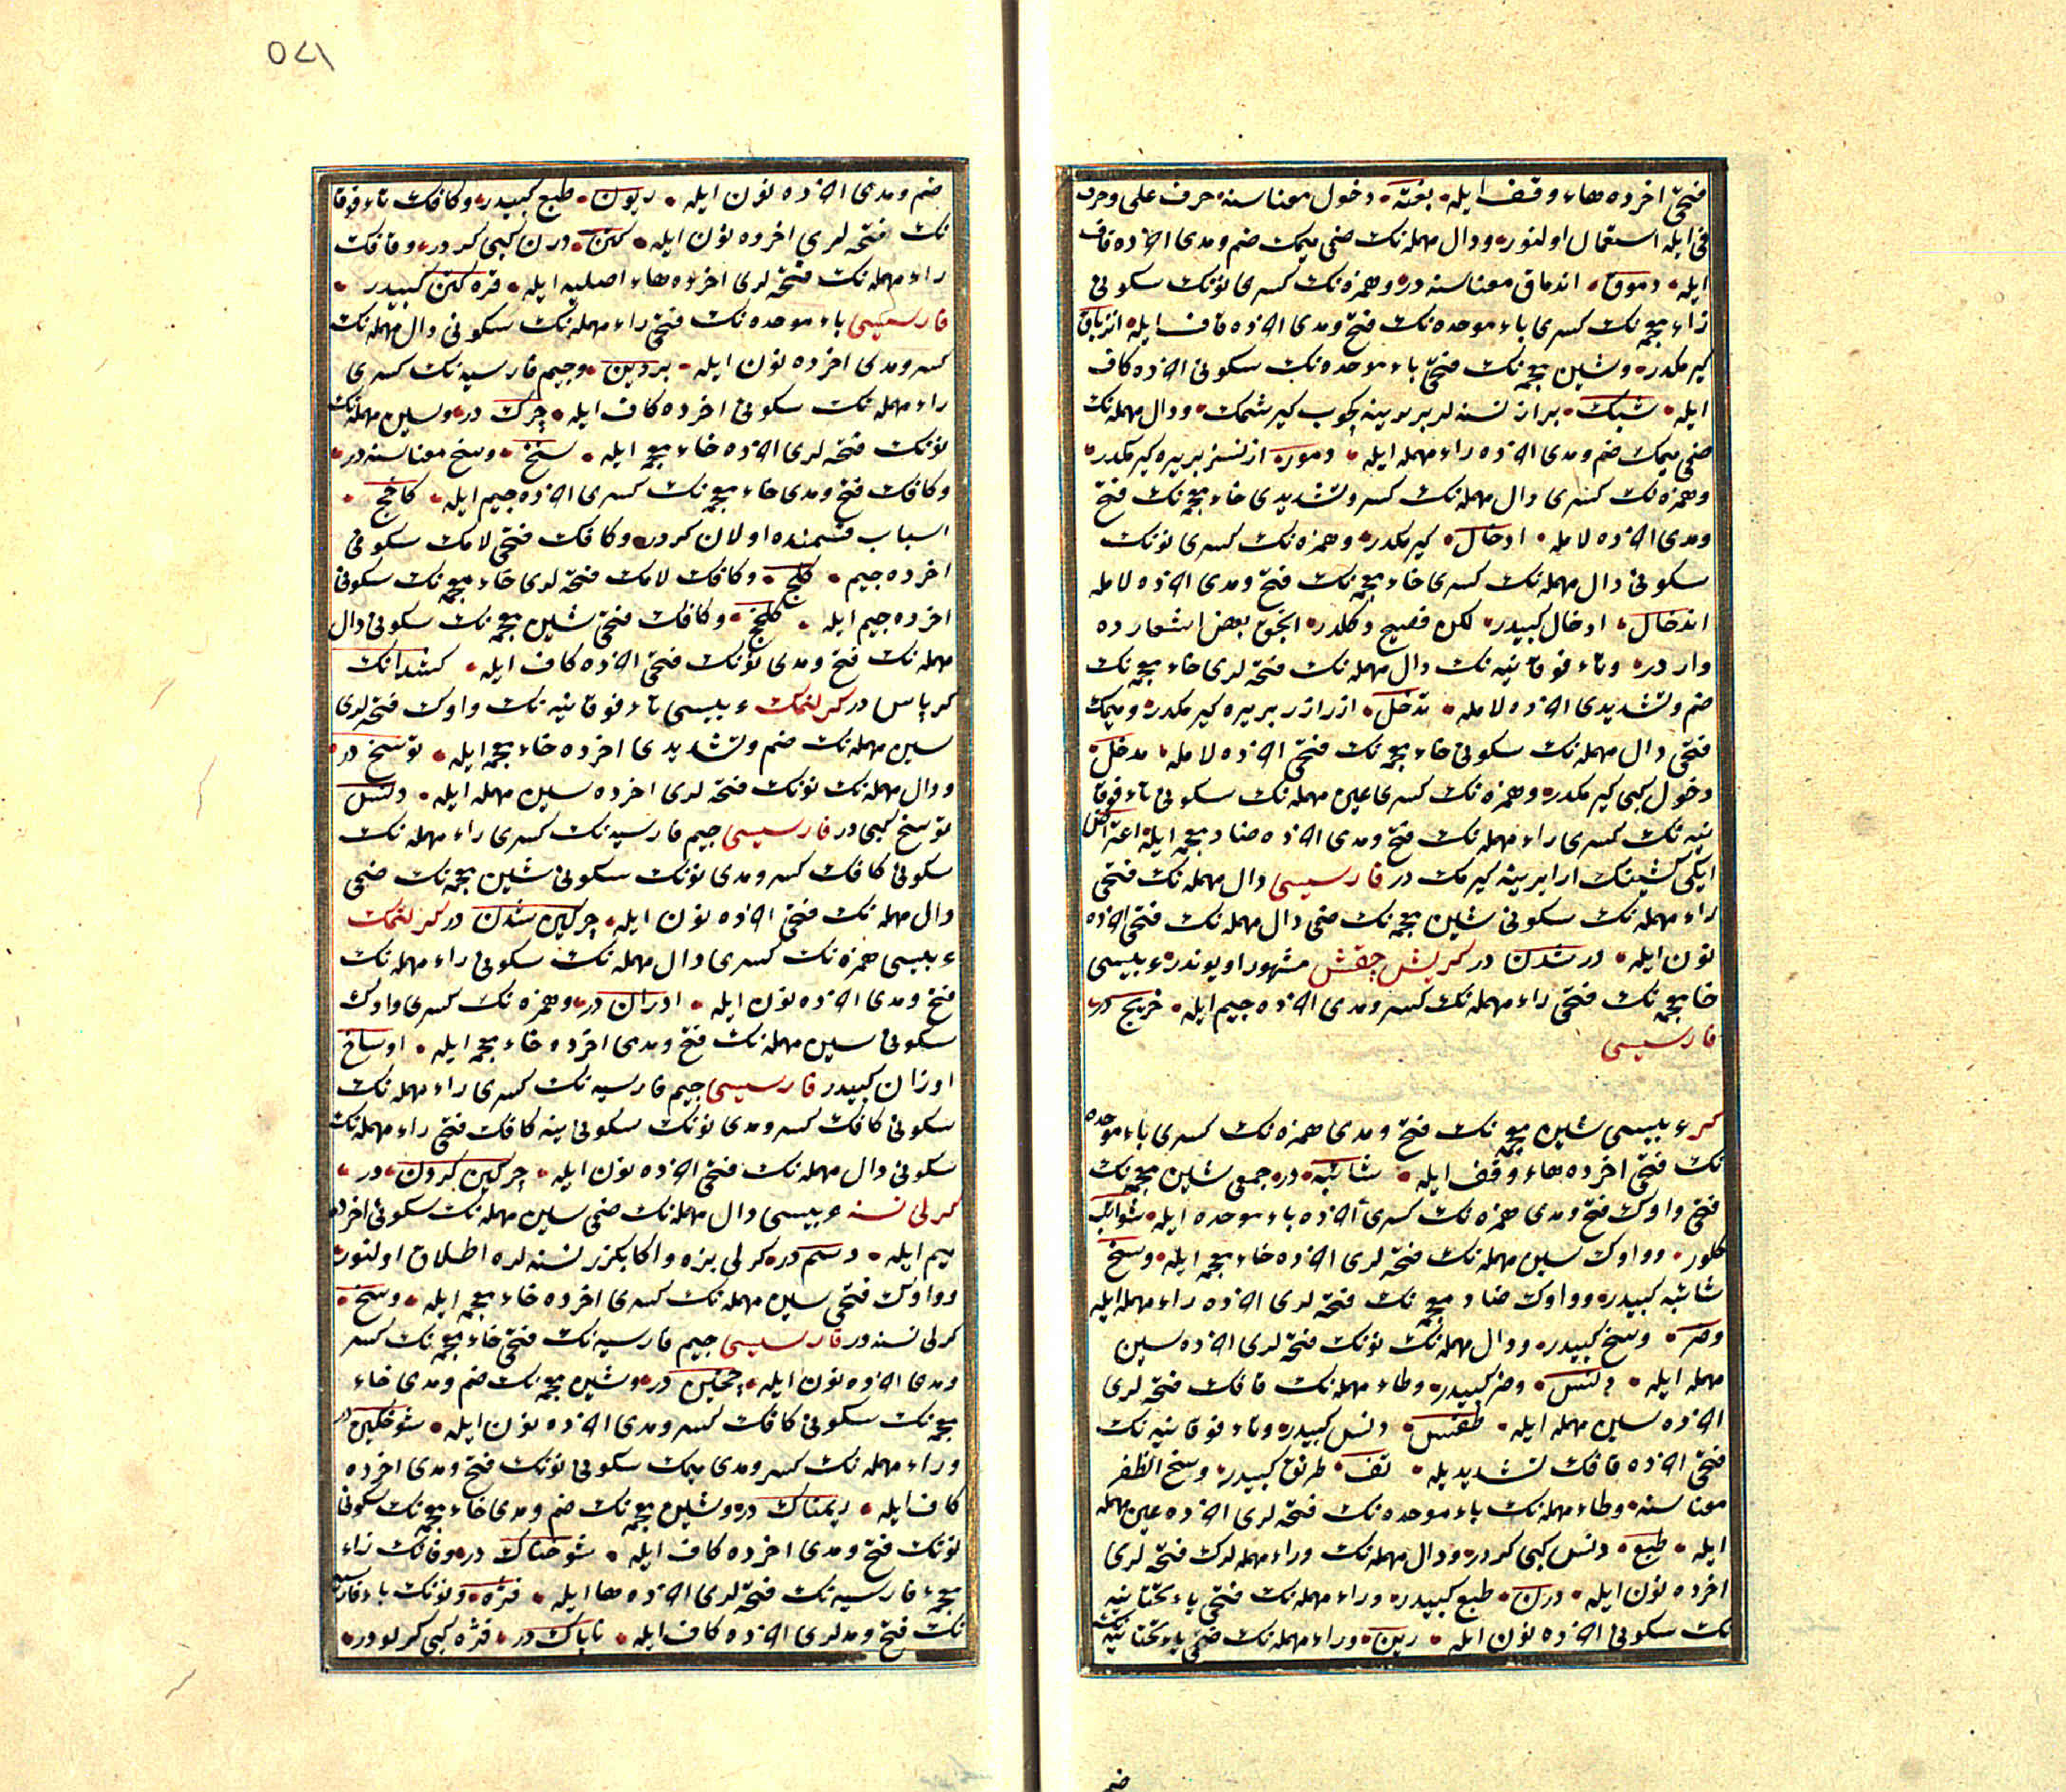 فتحی اخرده هاء وقف ایله • بغتة • دخول معناسنه حرف علی وحرف
فی ایله استعمال اولنور • ودال مهمله نك ضمی میمك ضم ومدی اخرده قاف
ایله • دموق • اندماق معناسنه در • وهمزه نك كسری نونك سكونی
زاء معجمه نك كسری باء موحده نك فتح ومدی اخرده قاف ایله • انزباق
كیرمكدر • وشین معجمه نك فتحی باء موحده نك سكونی اخرده كاف
ایله • شبك • براز نسنه لر بربرینه كچوب كیرشمك • ودال مهمله نك
ضمی میمك ضم ومدی اخرده راء مهمله ایله • دمور • اذنسز بر یره كیرمكدر •
وهمزه نك كسری دال مهمله نك كسر وتشدیدی خاء معجمه نك فتح
ومدی اخرده لامله • ادخال • كیرمكدر • وهمزه نك كسری نونك
سكونی دال مهمله نك كسری خاء معجمه نك فتح ومدی اخرده لامله
اندخال • ادخال كبیدر • لكن فصیح دكلدر • انجق بعض اشعارده
وارددر • وتاء فوقانیه نك دال مهمله نك فتحه لری خاء معجمه نك
ضم وتشدیدی اخرده لامله • تدخل • ازر ازر بر یره كیرمكدر • ومیمك
فتحی دال مهمله نك سكونی خاء معجمه نك فتحی اخرده لامله • مدخل •
دخول كبی كیرمكدر • وهمزه نك كسری عین مهمله نك سكونی تاء فوقا
نیه نك كسری راء مهمله نك فتح ومدی اخرده ضاد معجمه ایله اعتراض
ایكی كشینك ارالرینه كیرمك در فارسیسی دال مهمله نك فتحی
راء مهمله نك سكونی شین معجمه نك ضمی دال مهمله نك فتحی اخرده
نون ایله • درشدن در كریش جقش مشهور اویوندر • عربیسی
خا معجمه نك فتحی راء مهمله نك كسر ومدی اخرده جیم ایله • خریج در •
فارسیسی
كر عربیسی شین معجمه نك فتح ومدی همزه نك كسری باء موحده
نك فتحی اخرده هاء وقف ایله • شائبه • در • جمعی شین معجمه نك
فتحی واوك فتح ومدی همزه نك كسری اخرده باء موحده ایله • شوائب
كلور • وواوك سین مهمله نك فتحه لری اخرده خاء معجمه ایله • وسخ
شائبه كبیدر • وواوك ضاد معجمه نك فتحه لری اخرده راء مهمله ایله
وضر • وسخ كبیدر • ودال مهمله نك نونك فتحه لری اخرده سین
مهمله ایله • دنس • وضر كبیدر • وطاء مهمله نك فافك فتحه لری
اخرده سین مهمله ایله • طفس • دنس كبیدر • وتاء فوقانیه نك
فتحی اخرده فافك تشدیدیله • تف • طرنق كبیدر • وسخ الظفر
معناسنه • وطاء مهمله نك باء موحده نك فتحه لری اخرده عین مهمله
ایله • طبع • دنس كبی كردر • ودال مهمله نك وراء مهمله لرك فتحه لری
اخرده نون ایله • درن • طبع كبیدر • وراء مهمله نك فتحی یاء تحتانیه
نك سكونی اخرده نون ایله • رین • وراء مهمله نك ضمی یاء تحتانیه نك
ضم
۱۷٥
ضم ومدی اخرده نون ایله • ریون • طبع كبیدر • وكافك تاء فوقا
نك فتحه لری اخرده نون ایله • كتن • درن كبی كردر • وقافك
راء مهمله نك فتحه لری اخرده هاء اصلیه ایله • قره كتن كبیدر •
فارسیسی باء موحده نك فتحی راء مهمله نك سكونی دال مهمله نك
كسر ومدی اخرده نون ایله • بردین • وجیم فارسیه نك كسری
راء مهمله نك سكونی اخرده كاف ایله • چرك در • وسین مهمله نك
نونك فتحه لری اخرده خاء معجمه ایله • سنخ • وسخ معناسنه در •
وكافك فتح ومدی خاء معجمه نك كسری اخرده جیم ایله • كاخج •
اسباب قسمنده اولان كردر • وكافك فتحی لامك سكونی
اخرده جیم • كلج • وكافك لامك فتحه لری خاء معجمه نك سكونی
اخرده جیم ایله • كلخج • وكافك فتحی شین معجمه نك سكونی دال
مهمله نك فتح ومدی نونك فتحی اخرده كاف ایله • كشدانك
كرپاس در كرلنمك عربیسی تاء فوقانیه نك واوك فتحه لری
سین مهمله نك ضم وتشدیدی اخرده خاء معجمه ایله • توسخ در •
ودال مهمله نك نونك فتحه لری اخرده سین مهمله ایله • دنس
توسخ كبی در فارسیسی جیم فارسیه نك كسری راء مهمله نك
سكونی كافك كسر ومدی نونك سكونی شین معجمه نك ضمی
دال مهمله نك فتحی اخرده نون ایله • چركین شدن در كرلتمك
عربیسی همزه نك كسری دال مهمله نك سكونی راء مهمله نك
فتح ومدی اخرده نون ایله • ادران در • وهمزه نك كسری واوك
سكونی سین مهمله نك فتح ومدی اخرده خاء معجمه ایله • اوساخ
اوزان كبیدر فارسیسی جیم فارسیه نك كسری راء مهمله نك
سكونی كافك كسر ومدی نونك سكونی ینه كافك فتحی راء مهمله نك
سكونی دال مهمله نك فتحی اخرده نون ایله • چركین كردن • در •
كرلی نسنه عربیسی دال مهمله نك ضمی سین مهمله نك سكونی اخرده
میم ایله • دسم در • كرلی بزه واكا بكزر نسنه لره اطلاق اولنور •
وواوك فتحی سین مهمله نك كسری اخرده خاء معجمه ایله • وسخ •
كرلی نسنه در فارسیسی جیم فارسیه نك فتحی خاء معجمه نك كسر
ومدی اخرده نون ایله • چخین در • وشین معجمه نك ضم ومدی خاء
معجمه نك سكونی كافك كسر ومدی اخرده نون ایله • شوخكین در
وراء مهمله نك كسر ومدی میمك سكونی نونك فتح ومدی اخرده
كاف ایله • ریمناك در • وشین معجمه نك ضم ومدی خاء معجمه نك سكونی
نونك فتح ومدی اخرده كاف ایله • شوخناك در • وفانك زاء
معجمه فارسیه نك فتحه لری اخرده ها ایله • فژه • ونونك باء فارسیه
نك فتح ومدلری اخرده كاف ایله • ناپاك در • فژه كبی كرلودر •